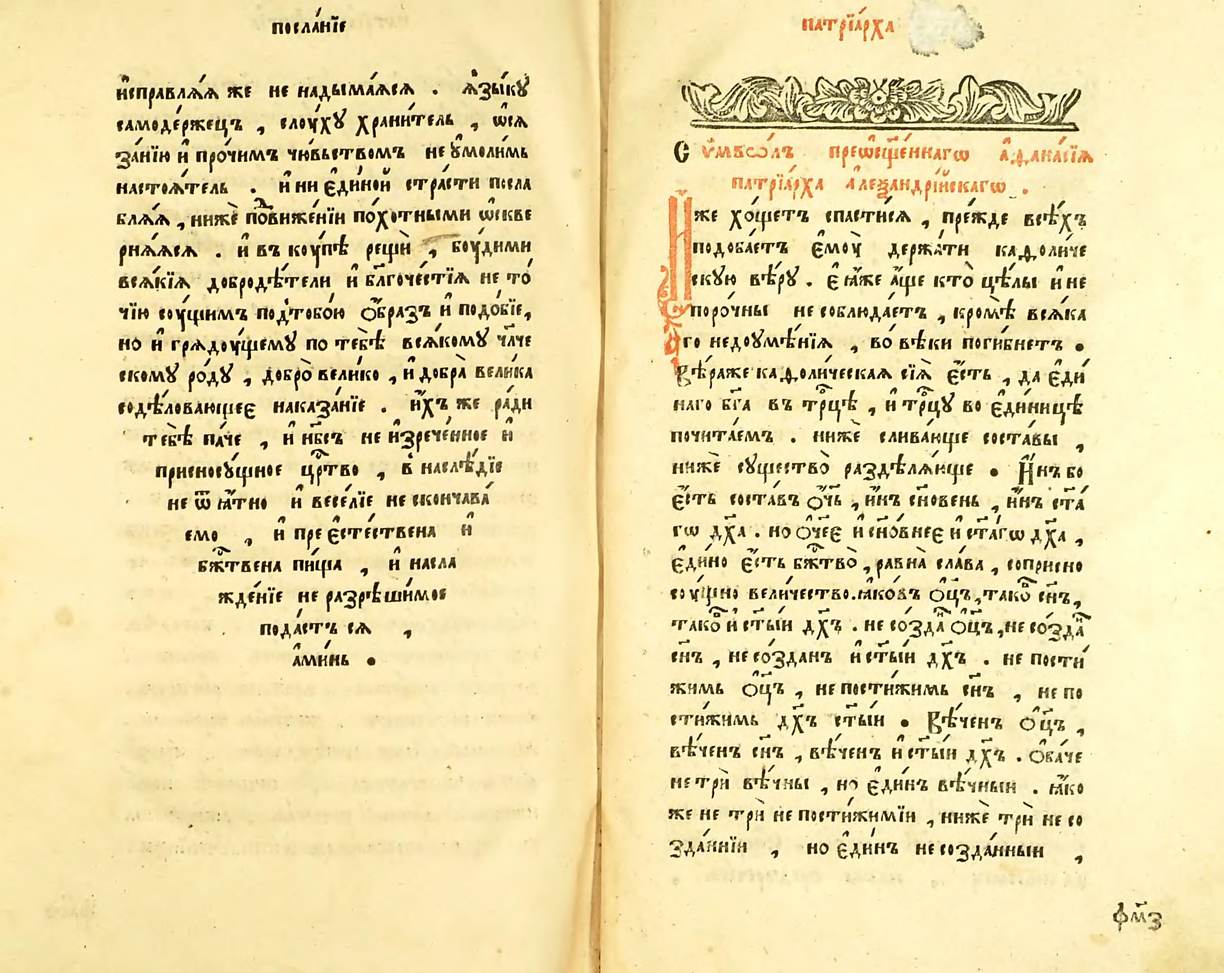 посла́нїе
и҆справлѧ́ѧ же не надыма́ѧсѧ . ѧ҆зы́кꙋ
самоде́ржецъ , слоу́хꙋ храни́тель , ѡ҆сѧ
за́нїю и҆ про́чимъ чю́вьствомъ не ᲂу҆моли́мь
настоѧ́тель . и҆ ни є҆ди́ной стра́сти посла
блѧ́ѧ , нижѐ подвиже́нїи по́хотными ѡ҆скве
рнѧ́ѧсѧ . и҆ въ коу́пѣ рещѝ , боу́дими
всѧ́кїѧ добродѣ́тели и҆ бл҃гоче́стїѧ не то́
чїю соу́щимъ под̾тобо́ю ѻ҆́бразъ и҆ подо́бїе,
но и҆ грѧдоу́щемꙋ по тебѣ̀ всѧ́комꙋ чл҃че
скомꙋ ро́дꙋ , добро̀ вели́ко , и҆ добра̀ вели́ка
содѣ́ловающеє наказа́нїе . и҆́хъ же ра́ди
тебѣ̀ па́че , и҆ нб҃съ не и҆зрече́нное и҆
присносꙋ́щное црⷭ҇тво , в̾ наслѣ́дїе
не ѿѧ́тно и҆ весе́лїе не сконча́ва́
емо , и҆ пре є҆сте́ствена и҆
бжⷭ҇твена пи́ща , и҆ насла
жде́нїе не разрѣши́мое
пода́стъ сѧ ,
а҆ми́нь .
патрїа́рха
Сѵ́мволъ преѡсщ҃е́ннагѡ а҆фана́сїѧ
патрїа́рха а҆леѯандрі́йскагѡ .
И҆́же хо́щетъ спасти́сѧ , пре́жде всѣ́хъ
подоба́етъ є҆моу̀ держа́ти кафоли́че
скую вѣ́рꙋ . є҆ѧ́же а҆́ще кто̀ цѣ́лы и҆ не
поро́чны не соблюда́етъ , кромѣ̀ всѧ́ка
го недоумѣ́нїѧ , во вѣ́ки поги́бнетъ .
Вѣ́раже кафоли́ческаѧ сїѧ̀ є҆́сть , да є҆ди́
наго бг҃а въ трⷪ҇цѣ , и҆ трⷪ҇цꙋ во є҆ди́ницѣ
почита́емъ . нижѐ слива́юще соста́вы ,
нижѐ сꙋщество̀ раздѣлѧ́юще . И҆́нъ бо
є҆́сть соста́въ ѻ҆́ч҃ь , и҆́нъ сн҃овень , и҆́нъ ст҃а́
гѡ дх҃а . но ѻ҆́ч҃ее и҆ сн҃о́внее и҆ ст҃а́гѡ дх҃а ,
є҆ди́но є҆́сть бжⷭ҇тво̀ , равна̀ сла́ва , соприсно
соу́щно вели́чество. ꙗ҆ко́въ ѻ҆ц҃ъ, тако́въ сн҃ъ,
тако́въ и҆ ст҃ы́и дх҃ъ . не созда́нъ ѻ҆ц҃ъ, не созда́нъ
сн҃ъ , не со́зданъ и҆ ст҃ы́и дх҃ъ . не пости́
жимь ѻ҆ц҃ъ , не пости́жимь сн҃ъ , не по
сти́жимь дх҃ъ ст҃ы́и . Вѣ́ченъ ѻ҆ц҃ъ ,
вѣ́ченъ сн҃ъ , вѣ́ченъ и҆ ст҃ы́и дх҃ъ . Ѻ҆ба́че
не трѝ вѣ́чны , но є҆ди́нъ вѣ́чныи . ꙗ҆́ко
же не трѝ не постижи́мїи , нижѐ трѝ не со
зда́ннїи , но є҆ди́нъ несозда́нныи ,
фм҃з